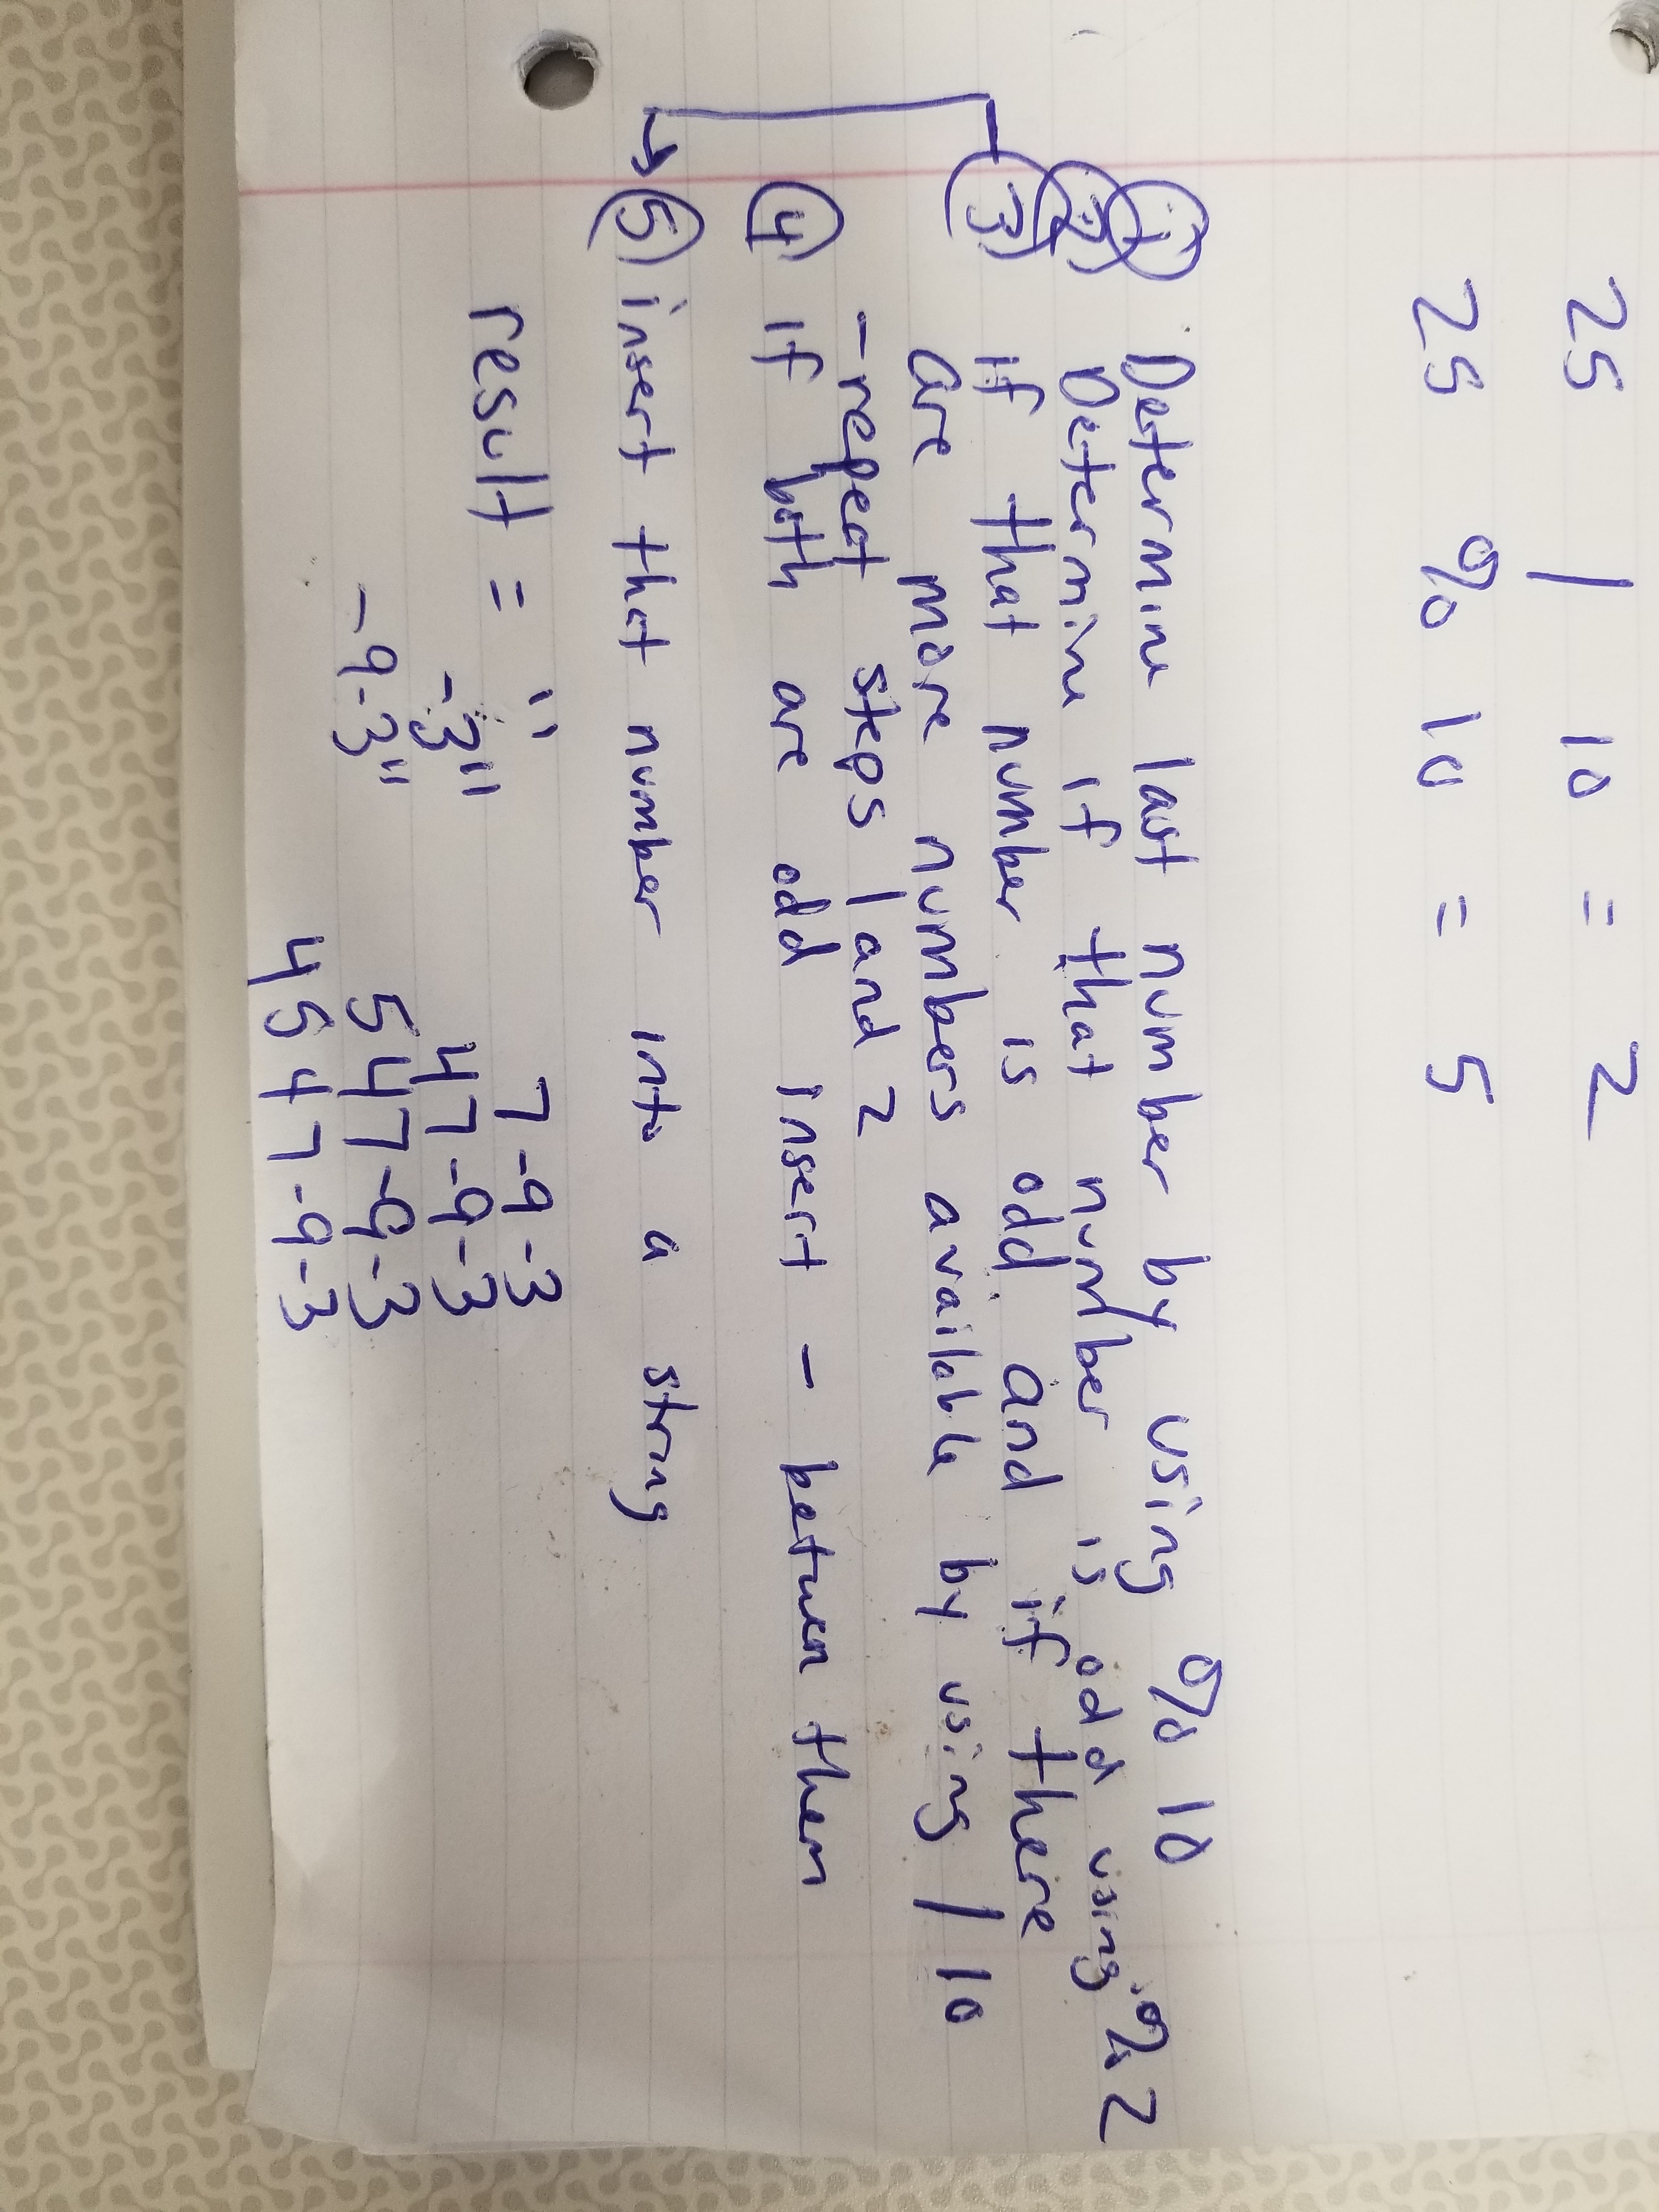 25 / 10 = 2
25 % 10 = 5
① Determine last number by using % 10
② Determine if that number is odd using % 2
③ if that number is odd and if there
are more numbers available by using / 10
- repeat steps 1 and 2
④ if both are odd insert - between them
⑤ insert that number into a string
result = "
-3"
-9-3"
7-9-3
47-9-3
547-9-3
4547-9-3